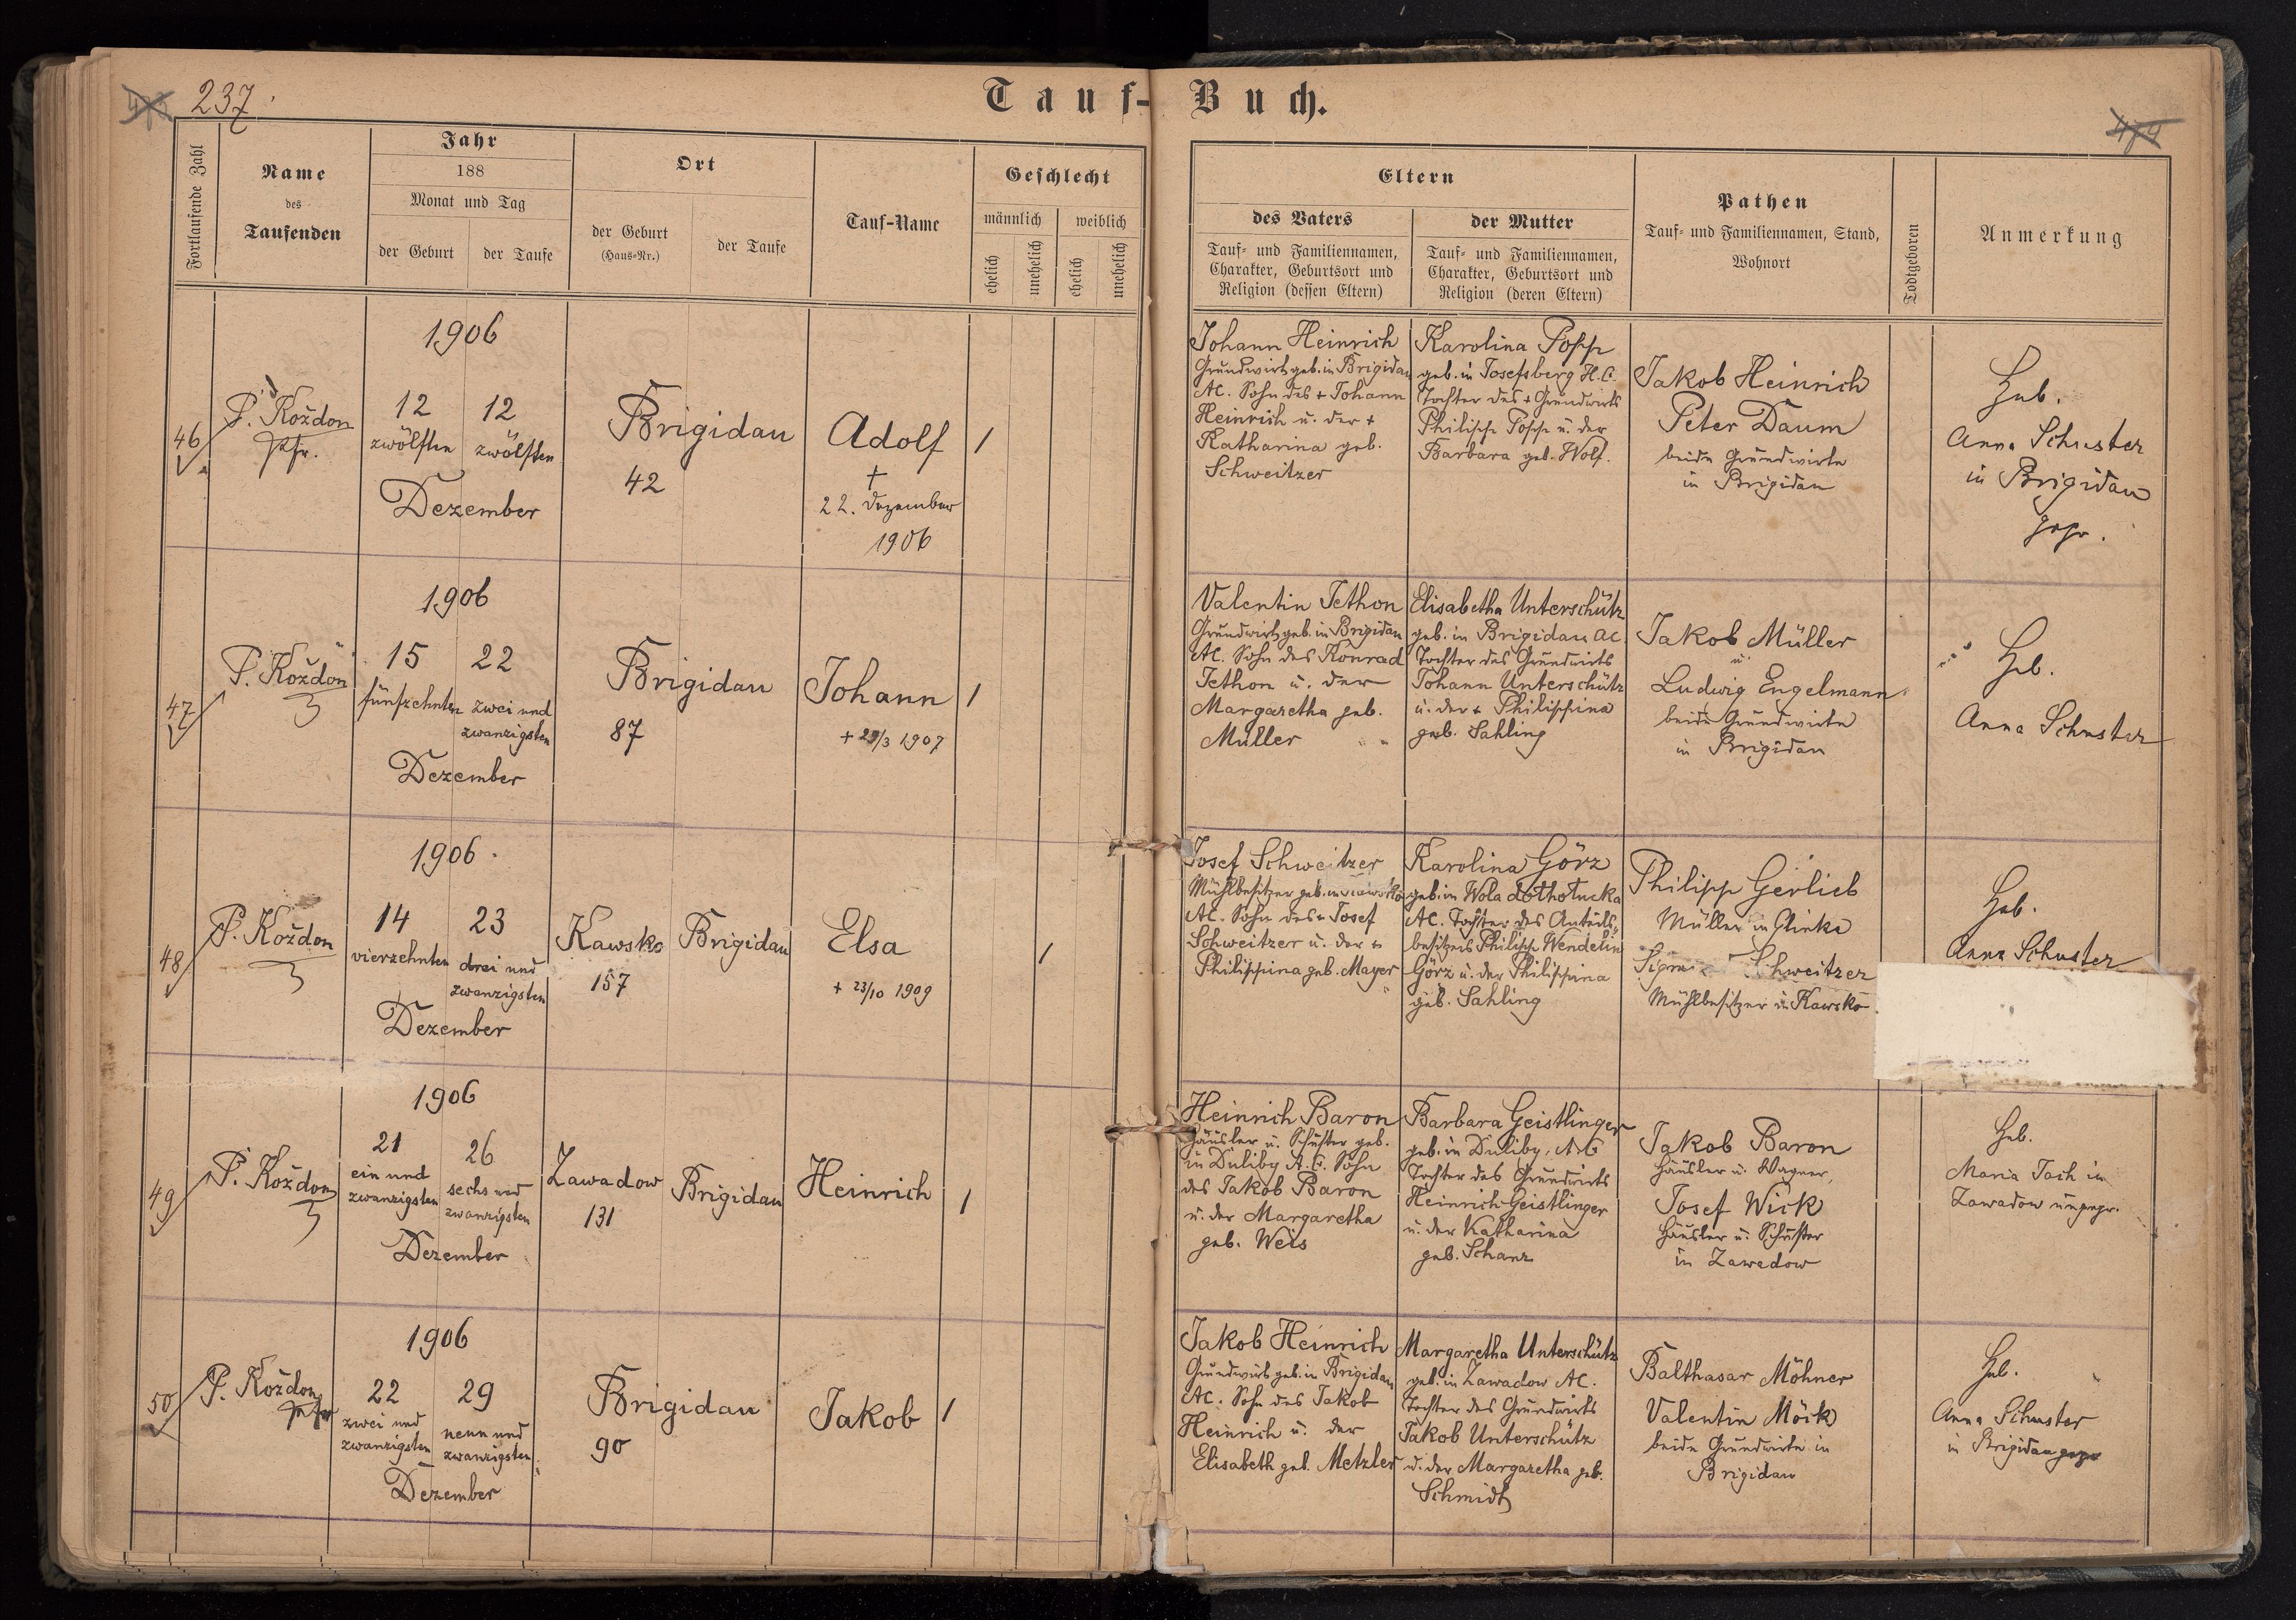 237.
Tauf-Buch.
Fortlaufende Zahl
Name
des
Taufenden
Jahr
188
Monat und Tag
der Geburt
der Taufe
Ort
der Geburt
(Haus-Nr.)
der Taufe
Tauf-Name
Geschlecht
männlich
weiblich
ehelich
unehelich
ehelich
unehelich
Eltern
des Vaters
Tauf- und Familiennamen,
Charakter, Geburtsort und
Religion (dessen Eltern)
der Mutter
Tauf- und Familiennamen,
Charakter, Geburtsort und
Religion (deren Eltern)
Pathen
Tauf- und Familiennamen, Stand,
Wohnort
Todtgeboren
Anmerkung
46
P. Koždon
Pfr.
1906
12
zwölften
12
zwölften
Dezember
Brigidau
42
Adolf
†
22. Dezember
1906
1
Johann Heinrich
Grundwirt geb. in Brigidau
AC. Sohn des + Johann
Heinrich u. der +
Katharina geb.
Schweitzer
Karolina Popp
geb. in Josefsberg H.C.
Tochter des + Grundwirts
Philipp Popp u. der
Barbara geb. Wolf.
Jakob Heinrich
Peter Daum
beide Grundwirte
in Brigidau
Heb.
Anna Schuster
in Brigidau
gepr.
47
P. Koždon
1906
15
fünfzehnten
22
zwei und
zwanzigsten
Dezember
Brigidau
87
Johann
+ 29/3 1907
1
Valentin Jethon
Grundwirt geb. in Brigidau
AC. Sohn des Konrad
Jethon u. der
Margaretha geb.
Müller
Elisabetha Unterschütz
geb. in Brigidau AC.
Tochter des Grundwirts
Johann Unterschütz
u. der + Philippina
geb. Sahling
Jakob Müller
u.
Ludwig Engelmann
beide Grundwirte
in Brigidau
Heb.
Anna Schuster
48
P. Koždon
1906.
14
vierzehnten
23
drei und
zwanzigsten
Dezember
Kawsko
157
Brigidau
Elsa
+ 23/10 1909
1
Josef Schweitzer
Mühlbesitzer geb. in Kawsko
AC. Sohn des + Josef
Schweitzer u. der +
Philippina geb. Mayer
Karolina Görz
geb. in Wola dołhołucka
AC. Tochter des Anteils-
besitzers Philipp Wendelin
Görz u. der Philippina
geb. Sahling
Philipp Gerlieb
Müller in Glinka
Schweitzer
Mühlbesitzer in Kawsko
Heb.
Anna Schuster
49
P. Koždon
1906
21
ein und
zwanzigsten
26
sechs und
zwanzigsten
Dezember
Zawadow
131
Brigidau
Heinrich
1
Heinrich Baron
Häusler u. Schuster geb.
in Duliby A.C. Sohn
des Jakob Baron
u. der Margaretha
geb. Weis
Barbara Geistlinger
geb. in Duliby, A.C.
Tochter des Grundwirts
Heinrich Geistlinger
u. der Katharina
geb. Schanz
Jakob Baron
Häusler u. Wagner,
Josef Wick
Häusler u. Schuster
in Zawadow
Heb.
Maria Tach in
Zawadow ungepr.
50
P. Koždon
Pfr
1906
22
zwei und
zwanzigsten
29
neun und
zwanzigsten
Dezember
Brigidau
90
Jakob
1
Jakob Heinrich
Grundwirt geb. in Brigidau
AC. Sohn des Jakob
Heinrich u. der
Elisabeth geb. Metzler
Margaretha Unterschütz
geb. in Zawadow AC.
Tochter des Grundwirts
Jakob Unterschütz
u. der Margaretha geb.
Schmidt
Balthasar Möhner
Valentin Möck
beide Grundwirte in
Brigidau
Heb.
Anna Schuster
in Brigidau gepr